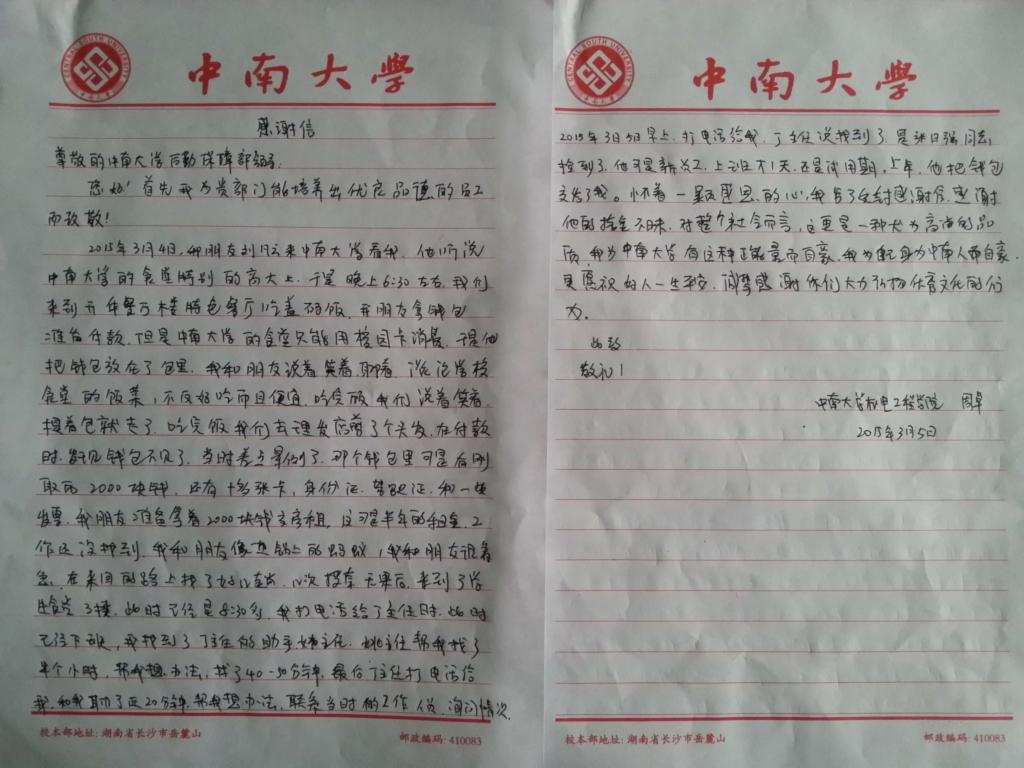 中南大学
感谢信
尊敬的中南大学后勤保障部领导:
您好!首先我为贵部门能培养出优良品德的员工
而致敬!
2015年3月4日,我朋友刘 来中南大学看我,他听说
中南大学的食堂特别的高大上,于是晚上6:30左右,我们
来到 楼特色餐厅吃盖码饭,我朋友拿钱包
准备付款,但是中南大学的食堂只能用校园卡消费,于是他
把钱包放在了包里,我和朋友谈着笑着聊着,谈论学校
食堂的饭菜,不仅好吃而且便宜,吃完饭我们说着笑着,
提着包就走了,吃完饭我们去理发店剪了个头发,在付款
时,发现钱包不见了,当时差点晕倒了,那个钱包里可是有刚
取的2000块钱,还有十多张卡,身份证,驾驶证,和一些
发票,我朋友准备拿着2000块钱交房租,这可是半年的租金,工
作还没找到,我和朋友像热锅上的蚂蚁,我和朋友很着
急,在来回的路上找了 次搜索无果后,来到了学
生食堂3楼,此时已经是8:30多,我打电话给丁主任时,此时
已经下班,我找到了丁主任的助手姚主任,姚主任帮我找了
半个小时,帮我想办法,找了40-50分钟,最后丁主任打电话给
我,和我聊了近20分钟,帮我想办法,联系当时的工作人员,询问情况,
校本部地址:湖南省长沙市岳麓山 邮政编码:410083
中南大学
2015年3月5日早上,打电话给我,丁主任说找到了,是张日强同志
捡到了,他可是新员工,上班才1天,还是试用期,上午,他把钱包
交给了我。怀着一颗感恩的心,我写了这封感谢信,感谢
他的拾金不昧,对整个社会而言,这更是一种尤为高尚的品
质,我为中南大学有这种正能量而自豪,我为身为中南人而自豪,
更愿祝好人一生平安,同学感谢你们大力弘扬优育文化的行
为。
此致
敬礼!
中南大学机电工程学院 周卓
2015年3月5日
校本部地址:湖南省长沙市岳麓山 邮政编码:410083